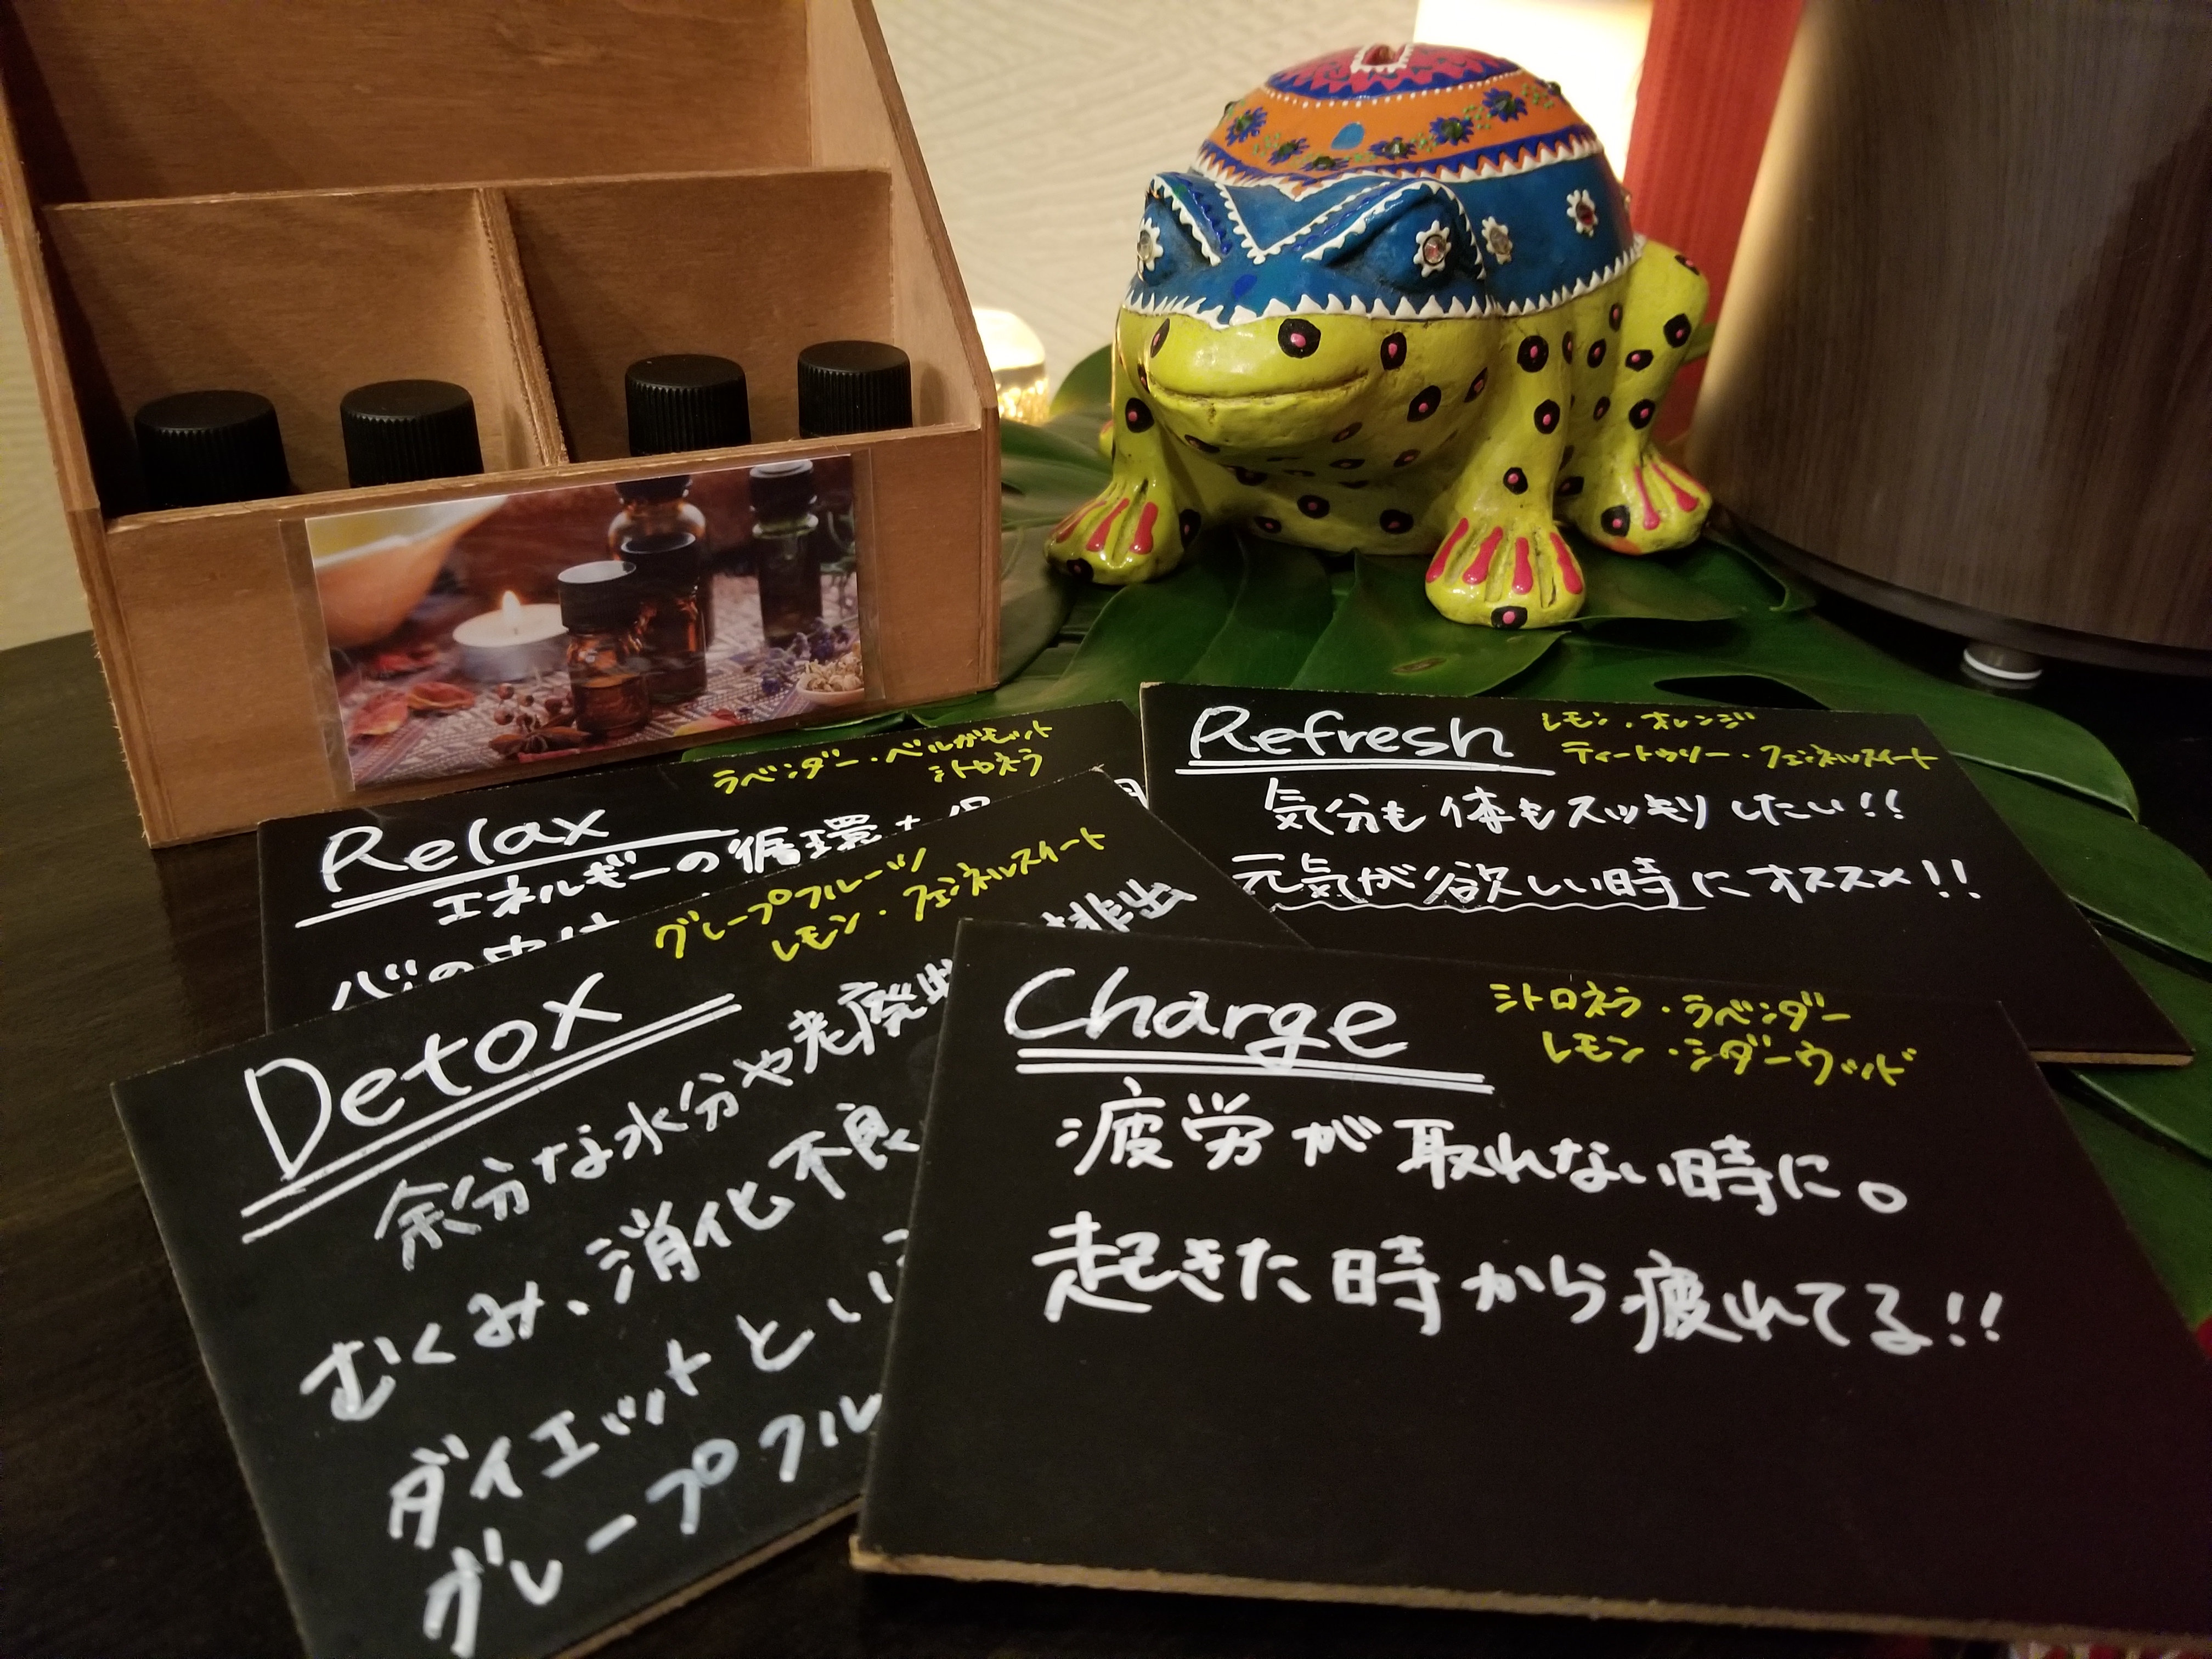 Relax
ラベンダー・ベルガモット
シトロネラ
エネルギーの循環
心の
Refresh
レモン・オレンジ
ティートゥリー・フェンネルスイート
気分も体もスッキリしたい!!
元気が欲しい時にオススメ!!
Detox
グレープフルーツ
レモン・フェンネルスイート
余分な水分や老廃 排出
むくみ、消化不良
ダイエットとい
グレープフル
Charge
シトロネラ・ラベンダー
レモン・シダーウッド
疲労が取れない時に。
起きた時から疲れてる!!